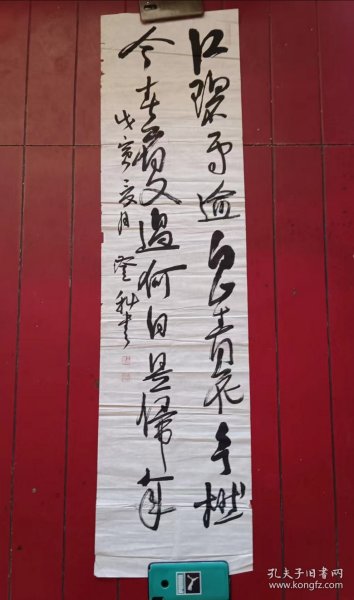 江碧鸟逾白山青花欲燃
今春看又過何日是歸年
戊寅夏月 秋书
孔夫子旧书网
www.kongfz.com